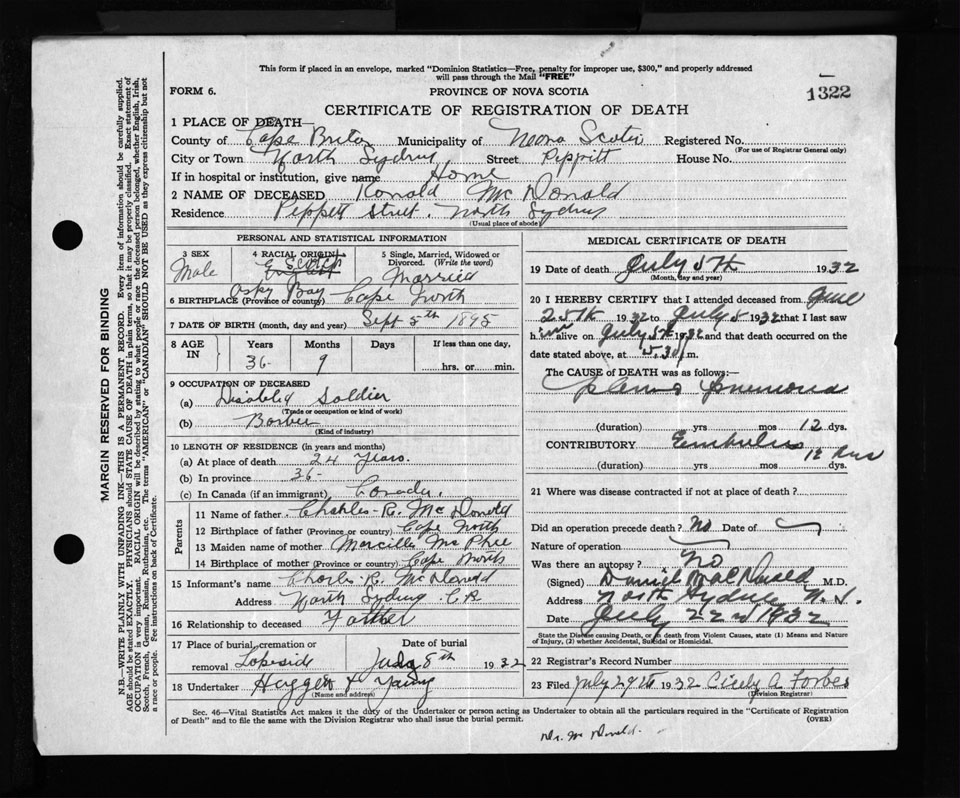 This form if placed in an envelope, marked "Dominion Statistics—Free, penalty for improper use, $300," and properly addressed
will pass through the Mail "FREE"
FORM 6.
PROVINCE OF NOVA SCOTIA
1322
CERTIFICATE OF REGISTRATION OF DEATH
1 PLACE OF DEATH—
County of Cape Breton Municipality of Nova Scotia Registered No.
(For use of Registrar General only)
City or Town North Sydney Street Peppitt House No.
If in hospital or institution, give name Home
2 NAME OF DECEASED Ronald McDonald
Residence Peppett Street. North Sydney
(Usual place of abode)
PERSONAL AND STATISTICAL INFORMATION
3 SEX Male
4 RACIAL ORIGIN Scotch
5 Single, Married, Widowed or Divorced. (Write the word) Married
6 BIRTHPLACE (Province or country) Aspy Bay Cape North
7 DATE OF BIRTH (month, day and year) Sept 5th 1895
8 AGE IN Years Months Days If less than one day,
36 9 hrs. or min.
9 OCCUPATION OF DECEASED
(a) Disabled Soldier
(Trade or occupation or kind of work)
(b) Barber
(Kind of industry)
10 LENGTH OF RESIDENCE (in years and months)
(a) At place of death 24 Years.
(b) In province 36
(c) In Canada (if an immigrant) Canada.
Parents
11 Name of father Charles R. McDonald
12 Birthplace of father (Province or country) Cape North
13 Maiden name of mother Marcella McPhee
14 Birthplace of mother (Province or country) Cape North
15 Informant's name Charles R. McDonald
Address North Sydney C.B.
16 Relationship to deceased Father
17 Place of burial, cremation or removal Lakeside
Date of burial July 8th 1932
18 Undertaker Haggett & Young
(Name and address)
MEDICAL CERTIFICATE OF DEATH
19 Date of death July 5th 1932
(Month, day and year)
20 I HEREBY CERTIFY that I attended deceased from June
25th 1932 to July 5 1932 that I last saw
him alive on July 5th 1932 and that death occurred on the
date stated above, at 5.30 m.
The CAUSE of DEATH was as follows:—
Pneumonia
(duration) yrs mos 12 dys.
CONTRIBUTORY Embulus
(duration) yrs mos 12 dys.
21 Where was disease contracted if not at place of death?
Did an operation precede death? No Date of
Nature of operation
Was there an autopsy? No
(Signed) Daniel MacDonald M.D.
Address North Sydney N.S.
Date July 22nd 1932
State the Disease causing Death, or in death from Violent Causes, state (1) Means and Nature
of Injury, (2) whether Accidental, Suicidal or Homicidal.
22 Registrar's Record Number
23 Filed July 29th 1932 Cicely A. Forbes
(Division Registrar)
Sec. 46—Vital Statistics Act makes it the duty of the Undertaker or person acting as Undertaker to obtain all the particulars required in the "Certificate of Registration
of Death" and to file the same with the Division Registrar who shall issue the burial permit.
(OVER)
Dr. McDonald.
MARGIN RESERVED FOR BINDING
N.B.—WRITE PLAINLY WITH UNFADING INK—THIS IS A PERMANENT RECORD. Every item of information should be carefully supplied.
AGE should be stated EXACTLY. PHYSICIANS should STATE CAUSE OF DEATH in plain terms, so that it may be properly classified. Exact statement of
OCCUPATION is very important. RACIAL ORIGIN will be described by stating to what people or race the deceased person belonged, whether English, Irish,
Scotch, French, German, Russian, Ruthenian, etc. The terms "AMERICAN" or "CANADIAN" SHOULD NOT BE USED as they express citizenship but not
a race or people. See instructions on back of Certificate.